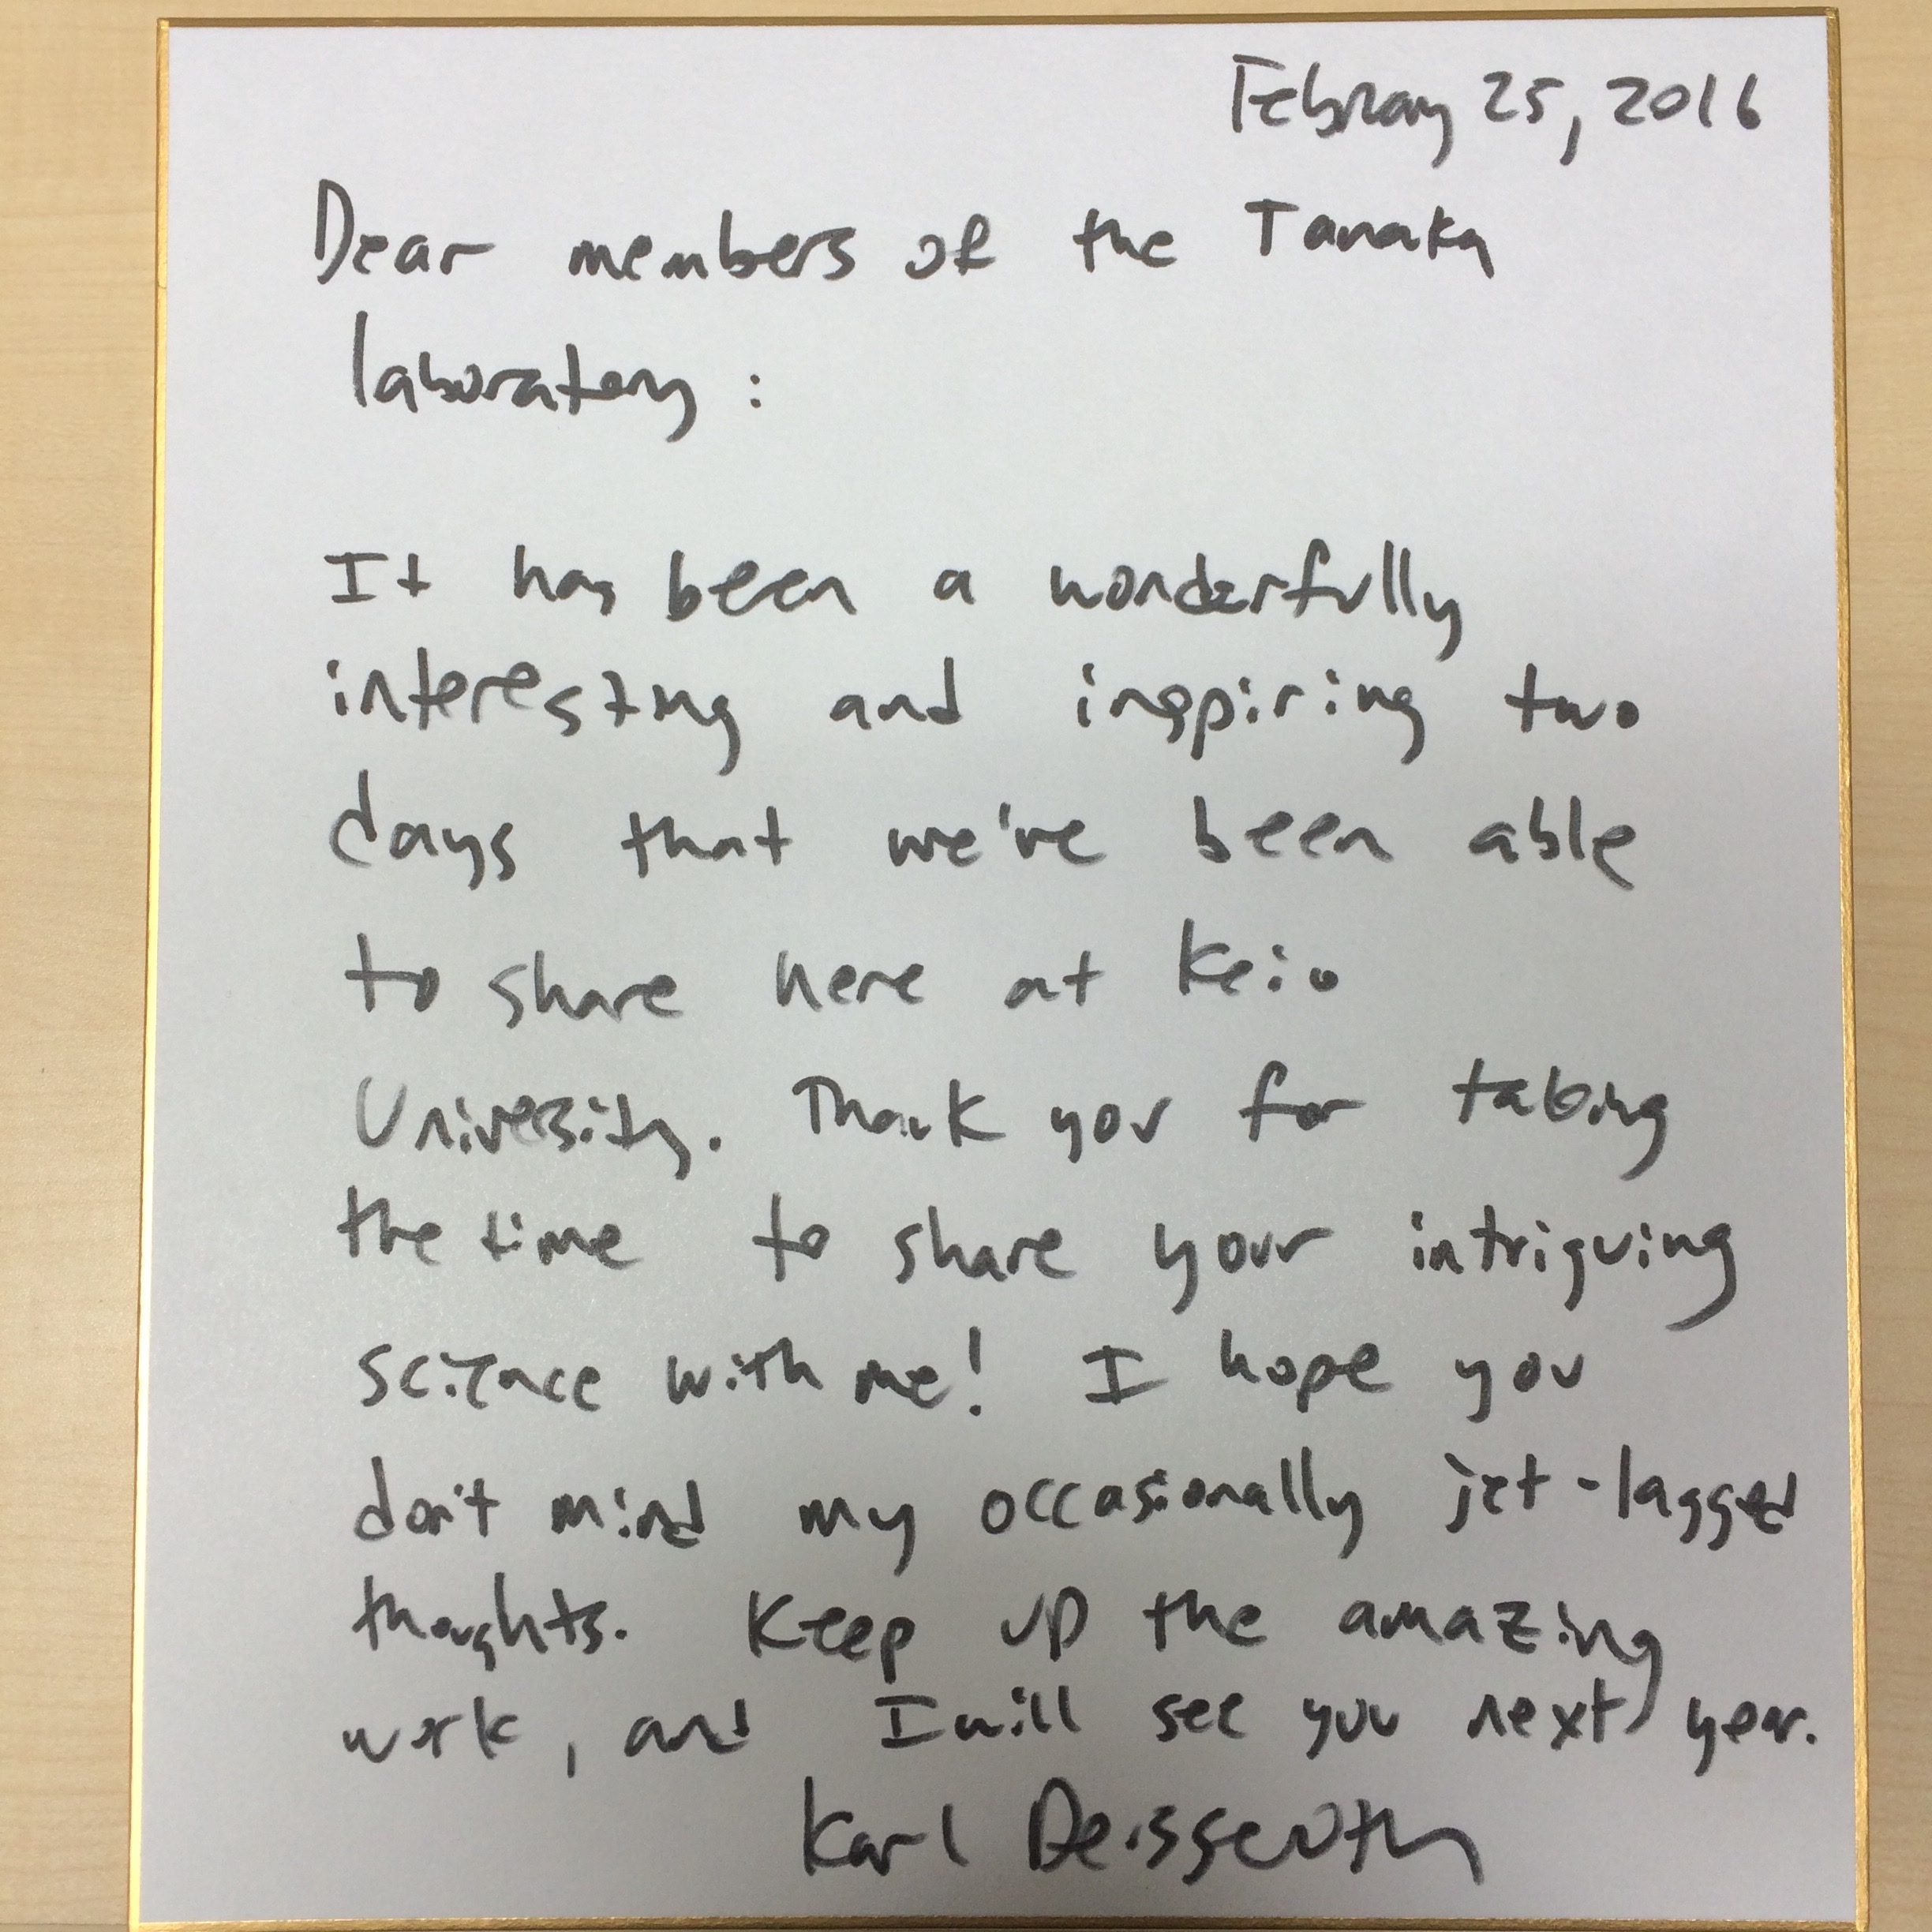 February 25, 2016
Dear members of the Tanaka
laboratory:
It has been a wonderfully
interesting and inspiring two
days that we've been able
to share here at Keio
University. Thank you for taking
the time to share your intriguing
science with me! I hope you
don't mind my occasionally jet-lagged
thoughts. Keep up the amazing
work, and I will see you next year.
Karl Deisseroth